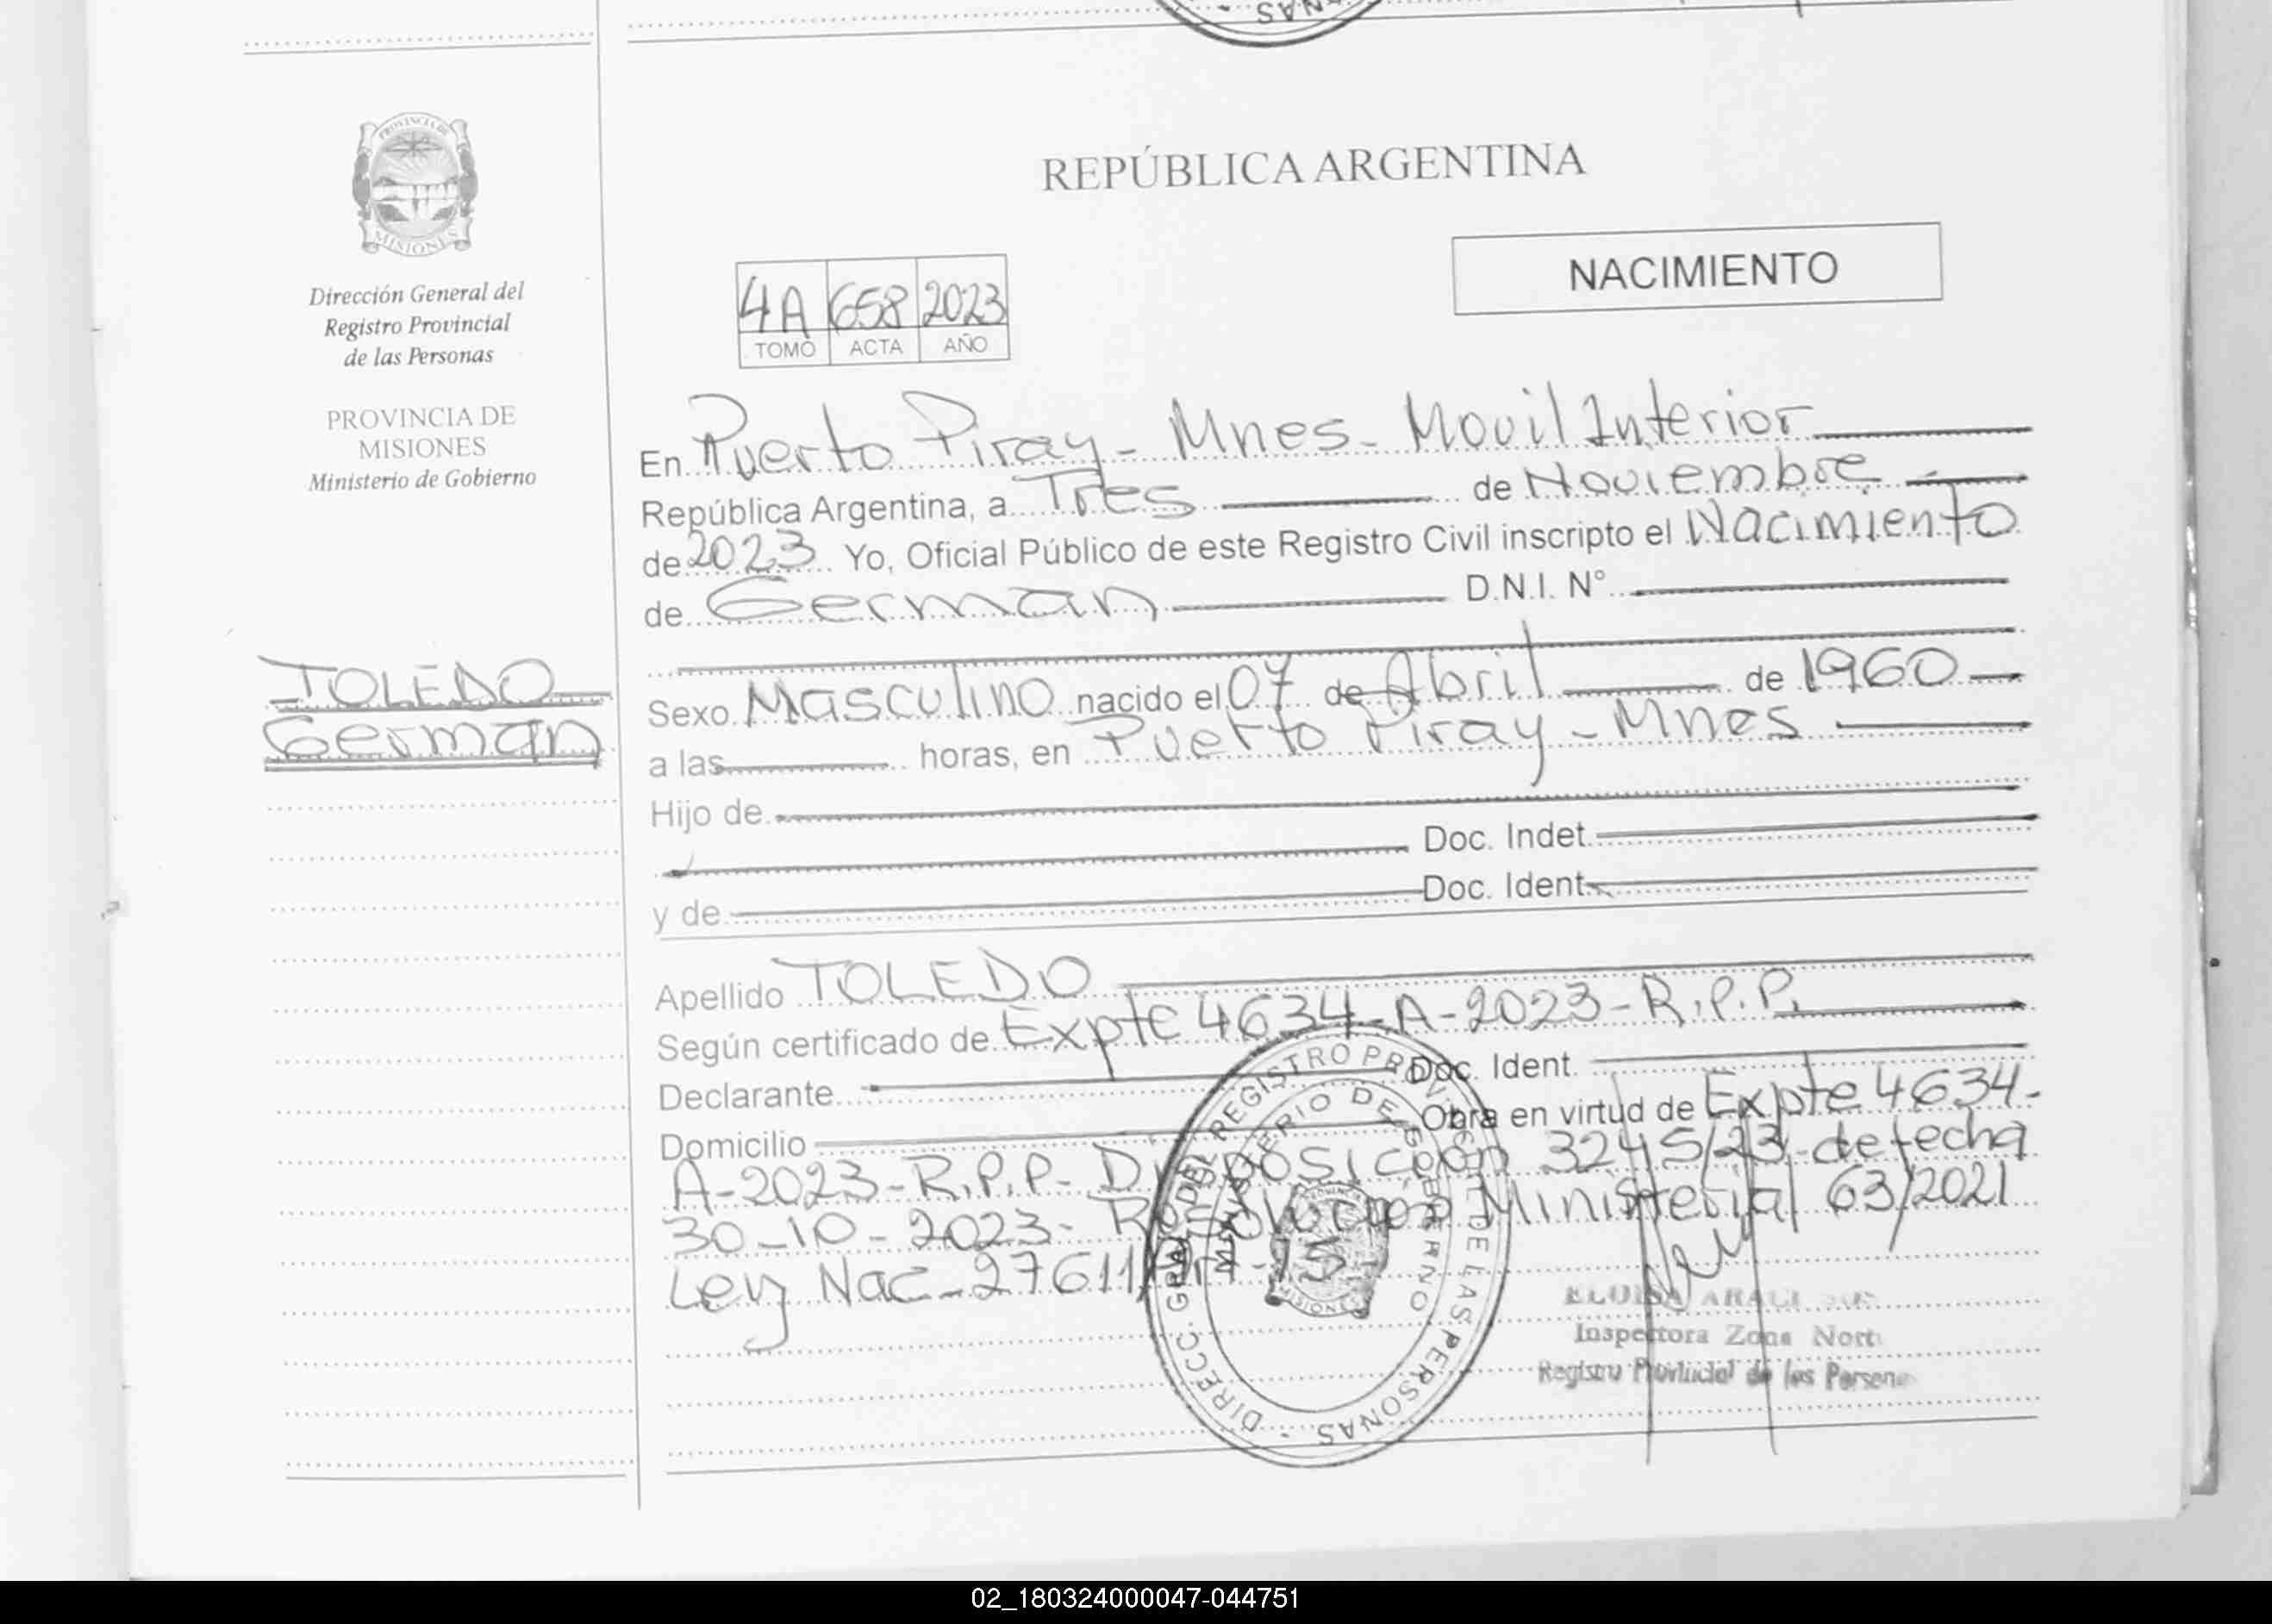 SONAS
PROVINCIA DE
MISIONES
Dirección General del
Registro Provincial
de las Personas
PROVINCIA DE
MISIONES
Ministerio de Gobierno
TOLEDO
German
REPÚBLICA ARGENTINA
NACIMIENTO
4A 658 2023
TOMO ACTA AÑO
En Puerto Piray - Mnes - Movil Interior
República Argentina, a Tres de Noviembre
de 2023 Yo, Oficial Público de este Registro Civil inscripto el Nacimiento
de German D.N.I. N°
Sexo Masculino nacido el 07 de Abril de 1960
a las horas, en Puerto Piray - Mnes
Hijo de
Doc. Indet.
y de Doc. Ident.
Apellido TOLEDO
Según certificado de Expte 4634-A-2023-R.P.P.
Declarante Doc. Ident.
Domicilio Obra en virtud de Expte 4634-
A-2023-R.P.P- Disposición 3245/23-de fecha
30-10-2023- Resolución Ministerial 63/2021
Ley Nac-27611/Art-15
DIRECC. GRAL. DEL REGISTRO PROVINC. DE LAS PERSONAS
MINISTERIO DE GOBIERNO
PROVINCIA
MISIONES
ELOISA ARACI
Inspectora Zona Nort
Registro Provincial de las Persona
02_180324000047-044751